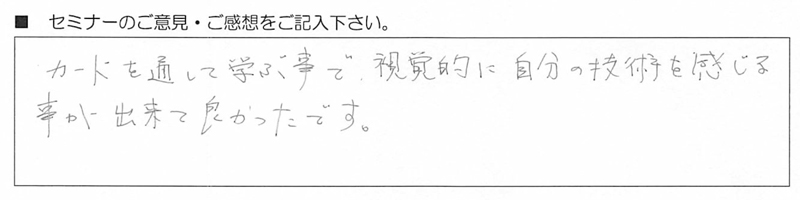 ■ セミナーのご意見・ご感想をご記入下さい。
カードを通して学ぶ事で、視覚的に自分の技術を感じる
事が出来て良かったです。